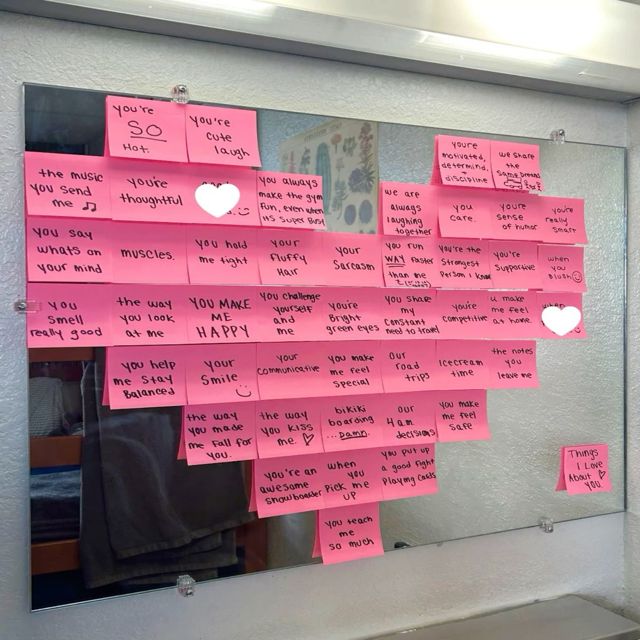 you're
SO
Hot.
you're
cute
laugh
you're
motivated,
determind,
+
discipline
we share
the
same
the music
you send
me ♫
you're
thoughtful
you always
make the gym
fun, even when
its super busy
we are
always
laughing
together
you
care.
your
sense
of humor
you're
really
smart
you say
whats on
your mind
muscles.
you hold
me tight
your
fluffy
Hair
your
Sarcasm
you run
WAY faster
than me
you're the
Strongest
Person I know
you're
Supportive
when
you
Blush ☺
you
smell
really good
the way
you look
at me
YOU MAKE
ME
HAPPY
you challenge
yourself
and
me
you're
Bright
green eyes
you share
my
constant
need to travel
you're
competitive
u make
me feel
at home.
you help
me stay
Balanced
your
Smile
your
communicative
you make
me feel
special
our
road
trips
Icecream
time
the notes
you
leave me
the way
you made
me fall for
you.
the way
you kiss
me. ♡
bikiki
boarding
...Damn.
our
4am
decisions
you make
me feel
safe
you're an
awesome
snowboarder
when
you
Pick me
up
you put up
a good fight
Playing cards
you teach
me
so much
Things
I Love
About ♡
you.